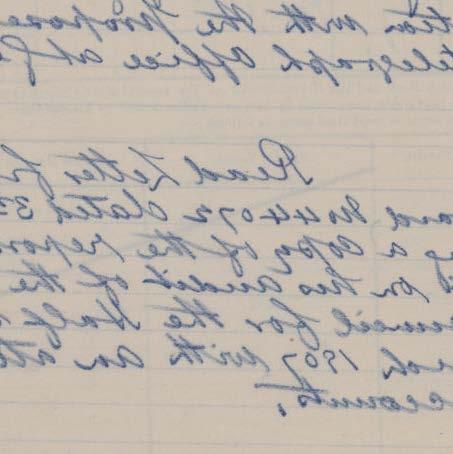 tion with the propose
telegraph office at
Read Letter fr
and No 44072 dated 3
a copy of the repor
on his audit of the
uncil for the half
rch 1907 with an
ccounts.